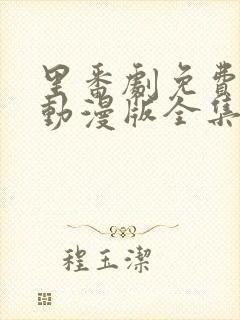 里番劇免費
動漫版全集
程玉潔